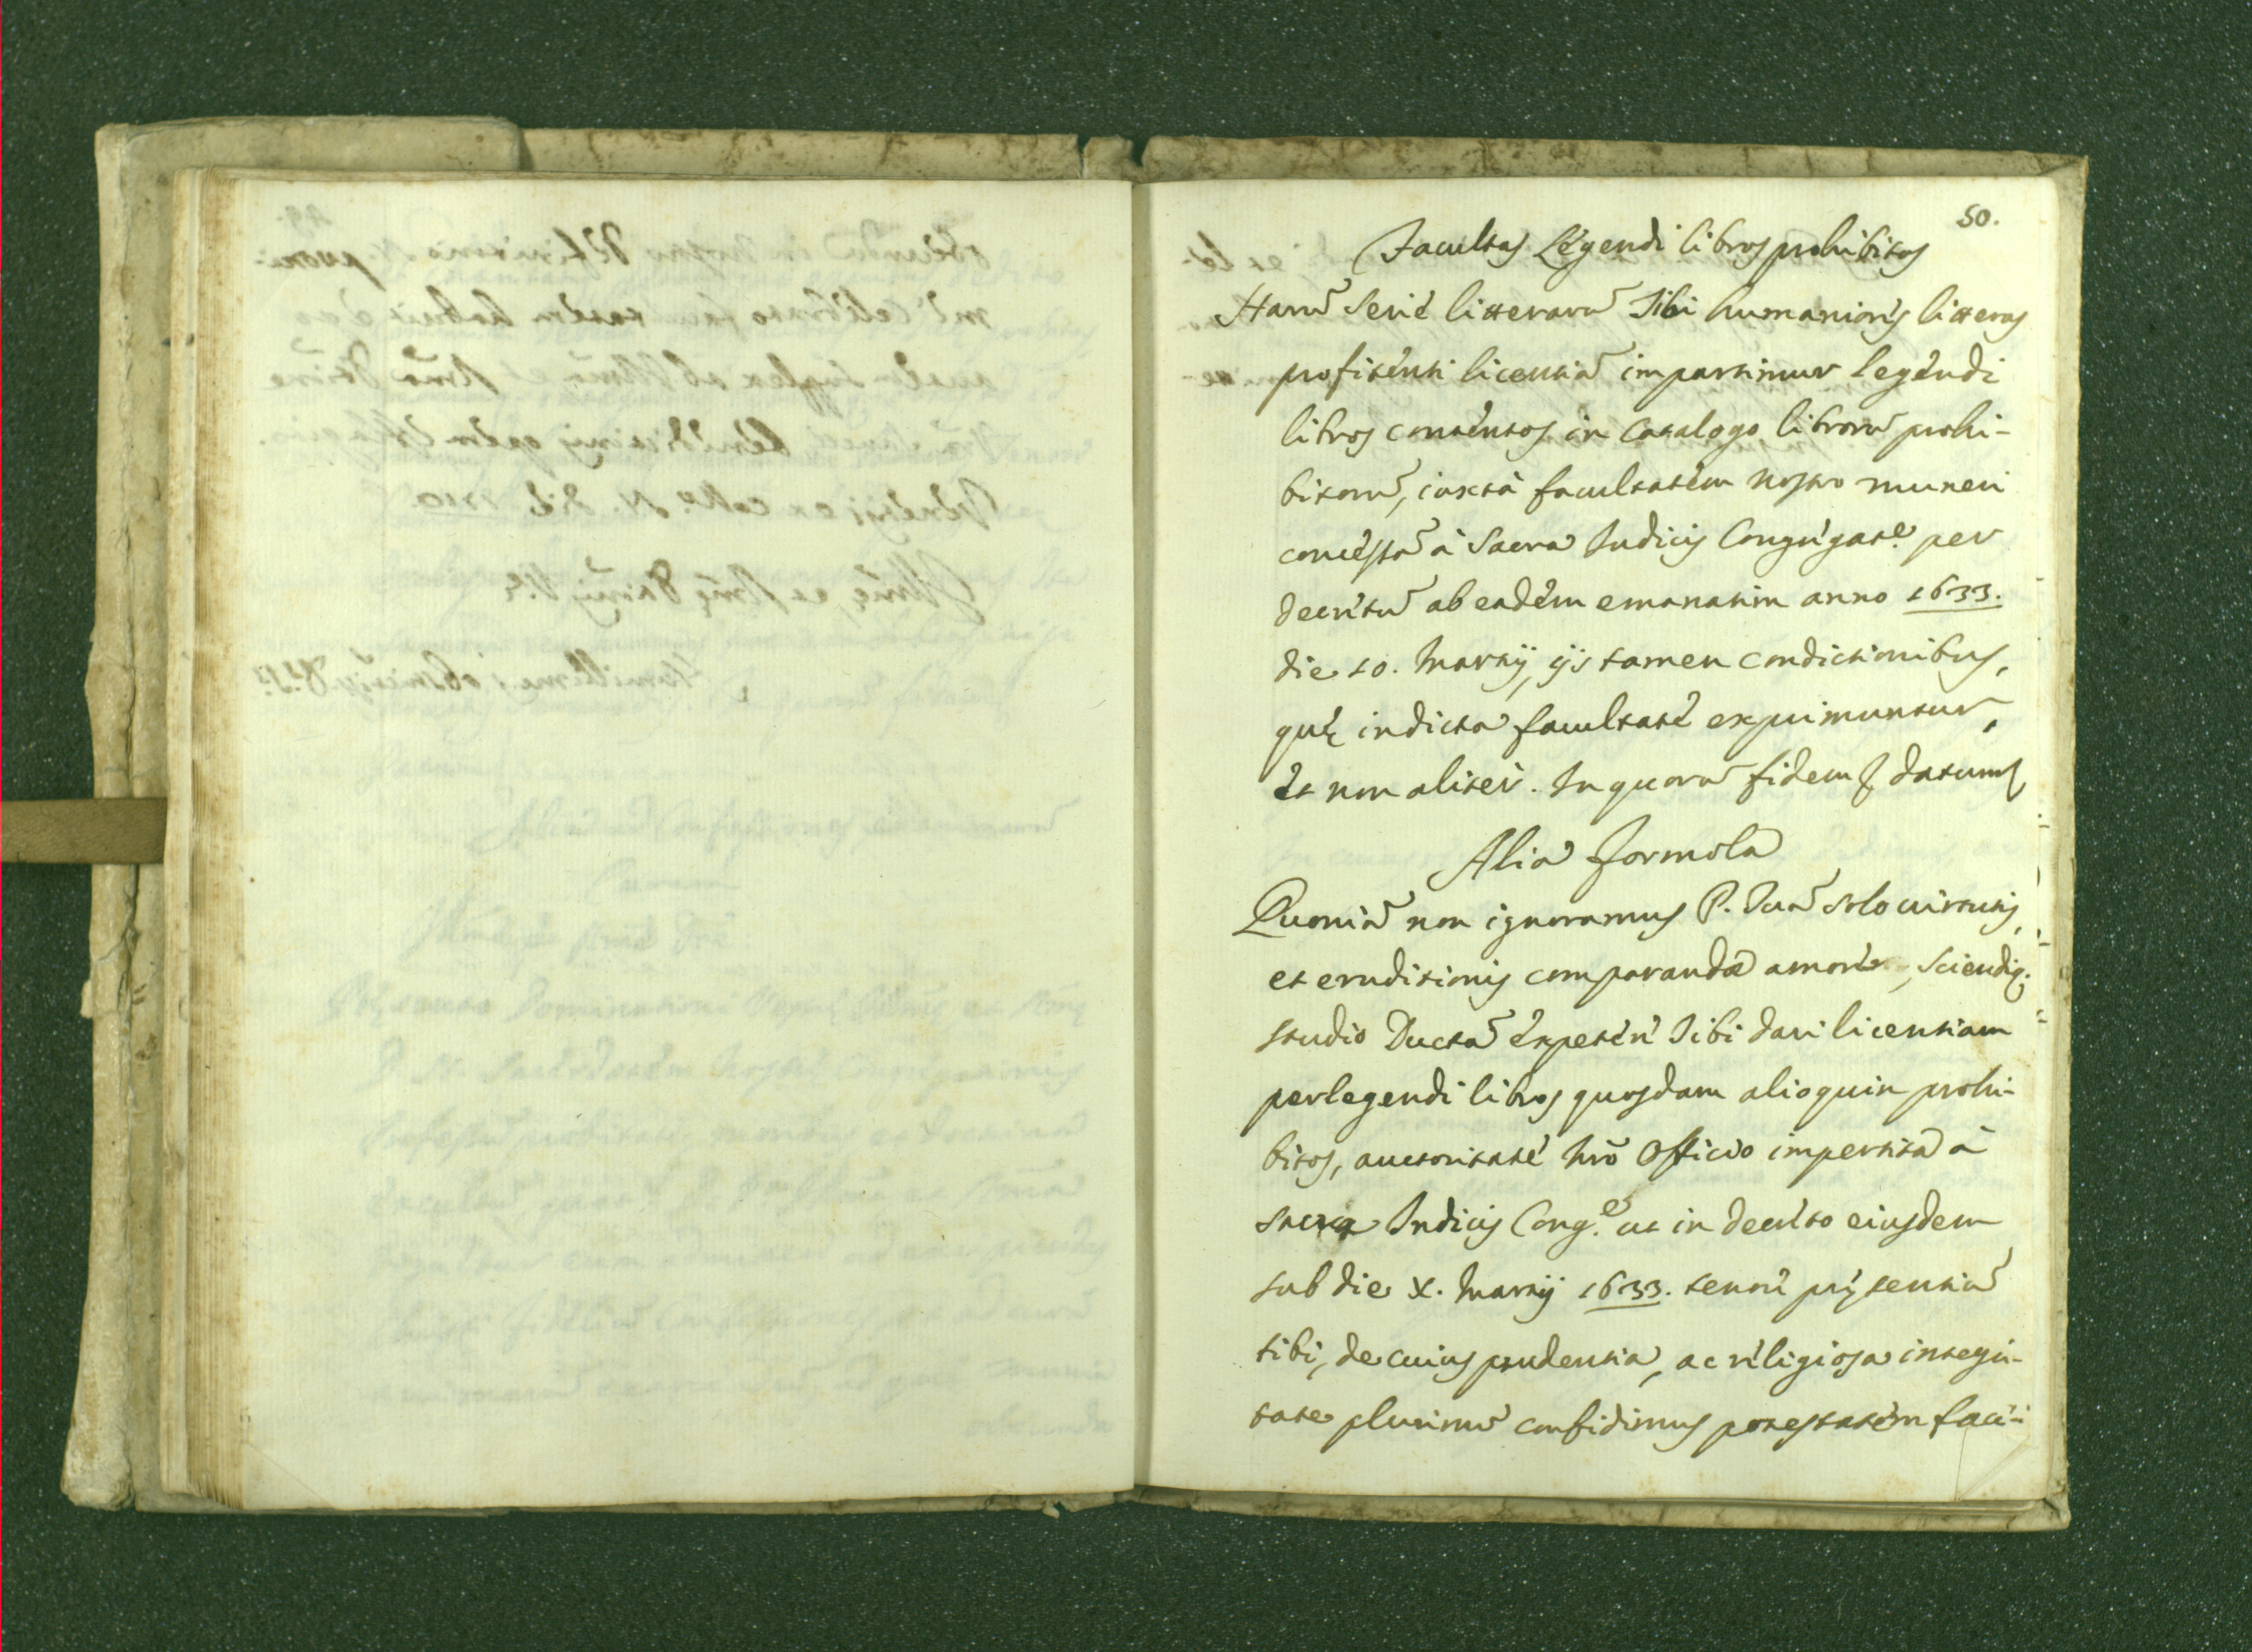 50.
Facultas Legendi libros prohibitos
Harũ serie litterarũ Tibi humanioris litteras
profitenti licentiã impartimur legendi
libros contentos in Catalogo librorũ prohi-
bitorũ, iuxtà facultatem nostro muneri
concessã à Sacra Indicis Congregat.e per
decretũ ab eadem emanatim anno 1633.
die 10. Martij, ijs tamen condictionibus,
quę in dicta facultate exprimuntur,
et non aliter. In quorũ fidem &. datum &.
Alia Formola
Quoniã non ignoramus P. Tuã solo virtutis,
et eruditionis comparandæ amore, sciendiq.
studio Ductã expetere Tibi dari licentiam
perlegendi libros quosdam alioquin prohi-
bitos, auctoritate nr̃o Officio impertita à
sacra Indicis Cong.e ut in decreto eiusdem
sub die X. Martij 1633. tenore pręsentiũ
tibi, de cuius prudentia, ac religiosa integri-
tate plurimũ confidimus potestatem faci-